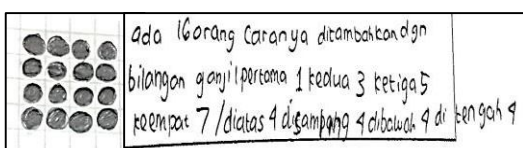 ada 16orang Caranya ditambahkan dgn
bilangan ganjil pertama 1 kedua 3 ketiga 5
keempat 7 / diatas 4 disamping 4 dibawah 4 di tengah 4